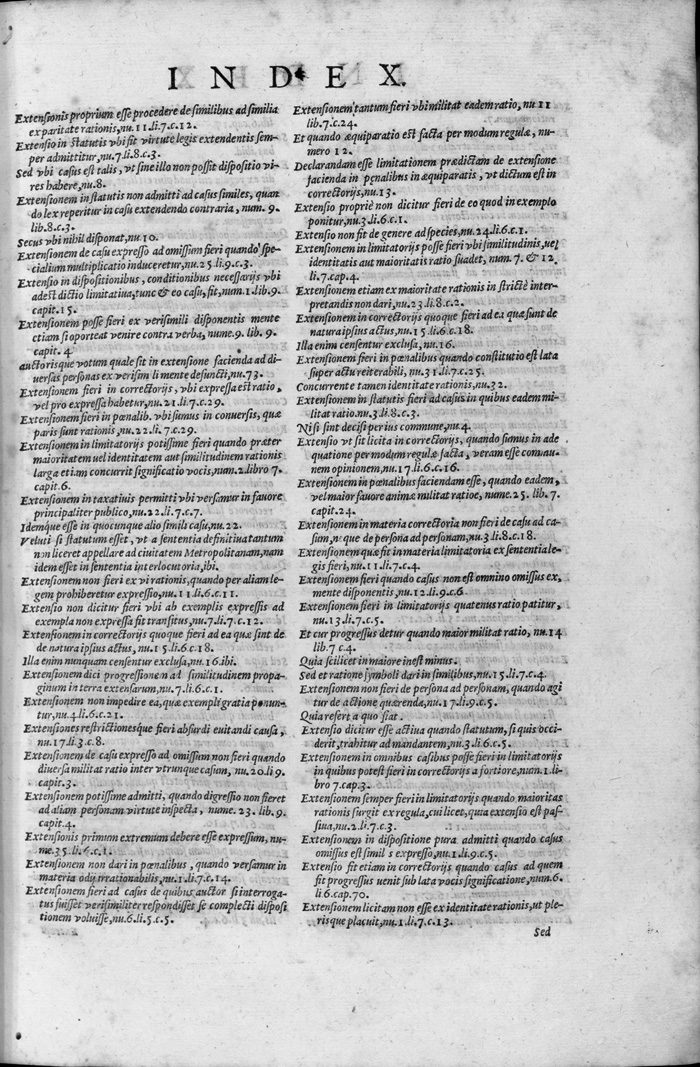 INDEX.
Extensionis proprium esse procedere de similibus ad similia
ex paritate rationis, nu.11.li.7.c.12.
Extensio in statutis vbi sit virtute legis extendentis sem-
per admittitur, nu.7.li.8.c.3.
Sed vbi casus est talis, vt sine illo non possit dispositio vi-
res habere, nu.8.
Extensionem in statutis non admitti ad casus similes, quan
do lex reperitur in casu extendendo contraria, num. 9.
lib.8.c.3.
Secus vbi nihil disponat, nu.10.
Extensionem de casu expresso ad omissum fieri quando spe-
cialium multiplicatio induceretur, nu.25.li.9.c.3.
Extensio in dispositionibus, conditionibus necessarijs vbi
adest dictio limitatiua, tunc & eo casu, fit, num.1.lib.9.
capit.15.
Extensionem posse fieri ex verisimili disponentis mente
etiam si oporteat venire contra verba, nume.9. lib. 9.
capit. 4.
auctorisque votum quale sit in extensione facienda ad di-
uersas personas ex verisimili mente defuncti, nu.73.
Extensionem fieri in correctorijs, vbi expressa est ratio,
vel pro expressa habetur, nu.21.li.7.c.29.
Extensionem fieri in pœnalib. vbi sumus in conuersis, quæ
paris sunt rationis, nu.22.li.7.c.29.
Extensionem in limitatorijs potissime fieri quando præter
maioritatem uel identitatem aut similitudinem rationis
larga etiam concurrit significatio vocis, num.2.libro 7.
capit.6.
Extensionem in taxatiuis permitti vbi versamur in fauore
principaliter publico, nu.22.li.7.c.7.
Idemque esse in quocunque alio simili casu, nu.22.
Veluti si statutum esset, vt a sententia definitiua tantum
non liceret appellare ad ciuitatem Metropolitanam, nam
idem esset in sententia interlocutoria, ibi.
Extensionem non fieri ex vi rationis, quando per aliam le-
gem prohiberetur expressio, nu.11.li.6.c.11.
Extensio non dicitur fieri vbi ab exemplis expressis ad
exempla non expressa fit transitus, nu.7.li.7.c.12.
Extensionem in correctorijs quoque fieri ad ea quæ sunt de
de natura ipsius actus, nu.15.li.6.c.18.
Illa enim nunquam censentur exclusa, nu.16.ibi.
Extensionem dici progressionem ad similitudinem propa-
ginum in terra extensarum, nu.7.li.6.c.1.
Extensionem non impedire ea, quæ exempli gratia ponun-
tur, nu.4.li.6.c.21.
Extensiones restrictionesque fieri absurdi euitandi causa,
nu.17.li.3.c.8.
Extensionem de casu expresso ad omissum non fieri quando
diuersa militat ratio inter vtrunque casum, nu.20.li.9.
capit.3.
Extensionem potissime admitti, quando digressio non fieret
ad aliam personam virtute inspecta, nume. 23. lib. 9.
capit.4.
Extensionis primum extremum debere esse expressum, nu-
me.35.li.6.c.1.
Extensionem non dari in pœnalibus, quando versamur in
materia odij irrationabilis, nu.1.li.7.c.14.
Extensionem fieri ad casus de quibus auctor si interroga-
tus fuisset verisimiliter respondisset se complecti disposi
tionem voluisse, nu.6.li.5.c.5.
Extensionem tantum fieri vbi militat eadem ratio, nu 11
lib.7.c.24.
Et quando æquiparatio est facta per modum regulæ, nu-
mero 12.
Declarandam esse limitationem prædictam de extensione
facienda in pœnalibus in æquiparatis, vt dictum est in
correctorijs, nu.13.
Extensio propriè non dicitur fieri de eo quod in exemplo
ponitur, nu.3.li.6.c.1.
Extensio non fit de genere ad species, nu.24.li.6.c.1.
Extensionem in limitatorijs posse fieri vbi similitudinis, uel
identitatis aut maioritatis ratio suadet, num.7. & 12
li.7.cap.4.
Extensionem etiam ex maioritate rationis in strictè inter-
pretandis non dari, nu.23.li.8.c.2.
Extensionem in correctorijs quoque fieri ad ea quæ sunt de
natura ipsius actus, nu.15.li.6.c.18.
Illa enim censentur exclusa, nu.16.
Extensionem fieri in pœnalibus quando constitutio est lata
super actu reiterabili, nu.31.li.7.c.25.
Concurrente tamen identitate rationis, nu.32.
Extensionem in statutis fieri ad casus in quibus eadem mi-
litat ratio.nu.3.li.8.c.3.
Nisi sint decisi per ius commune, nu.4.
Extensio vt sit licita in correctorijs, quando sumus in ade
quatione per modum regulæ facta, veram esse commu-
nem opinionem, nu.17.li.6.c.16.
Extensionem in pœnalibus faciendam esse, quando eadem,
vel maior fauore animæ militat ratioe, nume.25. lib. 7.
capit.24.
Extensionem in materia correctoria non fieri de casu ad ca-
sum, neque de persona ad personam, nu.3.li.8.c.18.
Extensionem quæ fit in materia limitatoria ex sententia le-
gis fieri, nu.11.li.7.c.4.
Extensionem fieri quando casus non est omnino omissus ex,
mente disponentis, nu.12.li.9.c.6
Extensionem fieri in limitatorijs quatenus ratio patitur,
nu.13.li.7.c.5.
Et cur progressus detur quando maior militat ratio, nu.14
lib.7 c.4.
Quia scilicet in maiore inest minus.
Sed et ratione symboli dari in similibus, nu.15.li.7.c.4.
Extensionem non fieri de persona ad personam, quando agi
tur de actione quærenda, nu.17.li.9.c.5.
Quia refert a quo fiat.
Extensio dicitur esse actiua quando statutum, si quis occi-
derit, trahitur ad mandantem, nu.3.li.6.c.5.
Extensionem in omnibus casibus posse fieri in limitatorijs
in quibus potest fieri in correctorijs a fortiore, num.1.li-
bro 7.cap.3.
Extensionem semper fieri in limitatorijs quando maioritas
rationis surgit ex regula, cui licet, quia extensio est pas-
siua, nu.2.li.7.c.3.
Extensionem in dispositione pura admitti quando casus
omissus est similis expresso, nu.1.li.9.c.5.
Extensio fit etiam in correctorijs quando casus ad quem
fit progressus uenit sub lata vocis significatione, num.6.
li 6.cap.70.
Extensionem licitam non esse ex identitate rationis, ut ple-
risque placuit, nu.1.li.7.c.13.
Sed